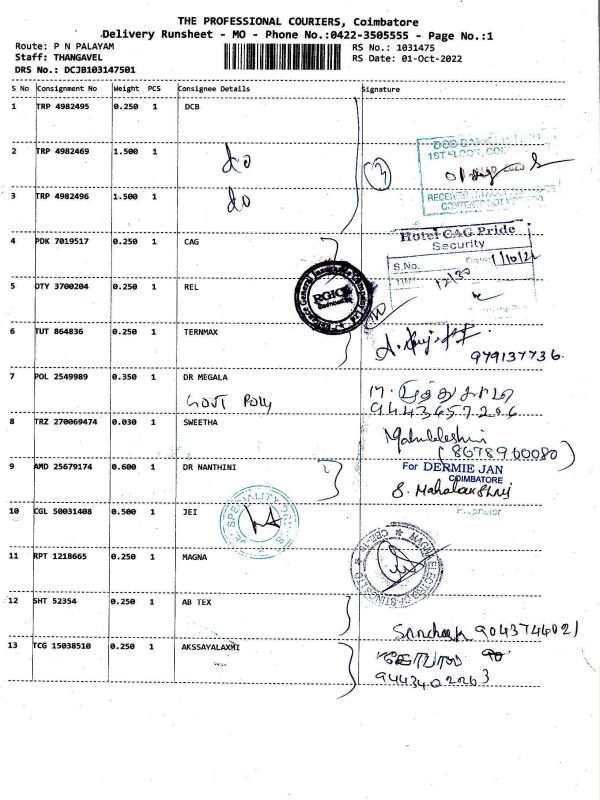 THE PROFESSIONAL COURIERS, Coimbatore
Delivery Runsheet - MO - Phone No.:0422-3505555 - Page No.:1
Route: P N PALAYAM RS No.: 1031475
Staff: THANGAVEL RS Date: 01-Oct-2022
DRS No.: DCJB103147501
S No Consignment No Weight PCS Consignee Details Signature
1 TRP 4982495 0.250 1 DCB
2 TRP 4982469 1.500 1 do
1ST FLOOR,
3 TRP 4982496 1.500 1 do
RECEIVED
4 PDK 7019517 0.250 1 CAG
Hotel CAG Pride
Security
S.No. Date: 1/10/22
12/30
5 OTY 3700204 0.250 1 REL
RGICL
6 TUT 864836 0.250 1 TERNMAX
979137736.
7 POL 2549989 0.350 1 DR MEGALA
GOVT Poly
9443657206
8 TRZ 270069474 0.030 1 SWEETHA
(8678960080)
9 AMD 25679174 0.600 1 DR NANTHINI
For DERMIE JAN
COIMBATORE
S. Mahalakshmi
Proprietor
10 CGL 50031408 0.500 1 JEI
11 RPT 1218665 0.250 1 MAGNA
12 SHT 52354 0.250 1 AB TEX
9043744021
13 TCG 15038510 0.250 1 AKSSAYALAXMI
9443402263